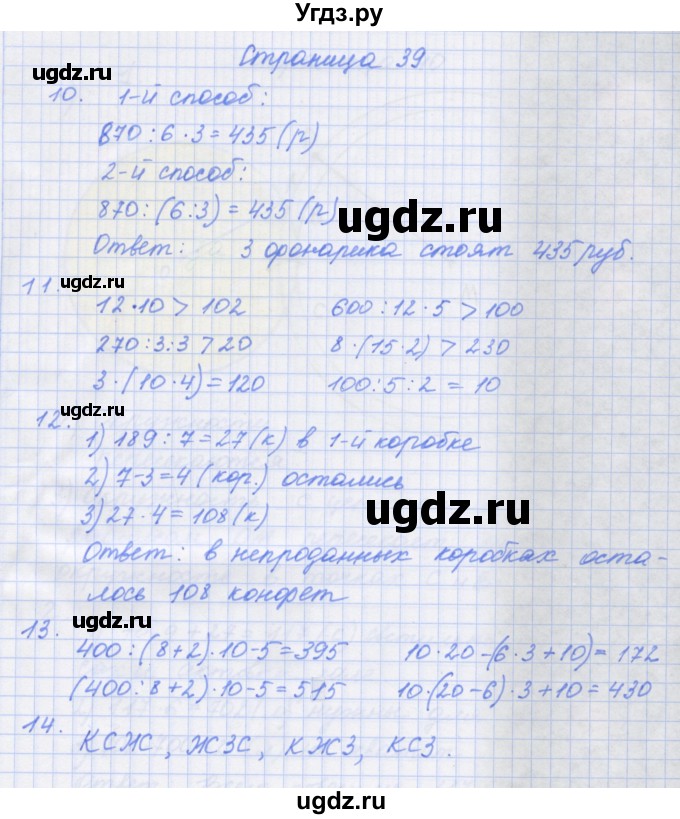 Угдз.ру
Страница 39
ugdz.ru
10. 1-й способ:
870 : 6 · 3 = 435 (р)
2-й способ:
ugdz.ru
870 : (6 : 3) = 435 (р)
ugdz.ru
Ответ: 3 фонарика стоят 435 руб.
11.
ugdz.ru
12 · 10 > 102 600 : 12 · 5 > 100
270 : 3 : 3 > 20 8 · (15 · 2) > 230
3 · (10 · 4) = 120 100 : 5 : 2 = 10
12.
ugdz.ru
1) 189 : 7 = 27 (к) в 1-й коробке
2) 7 - 3 = 4 (кор.) остались
3) 27 · 4 = 108 (к)
ugdz.ru
Ответ: в непроданных коробках оста-
лось 108 конфет
13.
ugdz.ru
400 : (8 + 2) · 10 - 5 = 395 10 · 20 - (6 · 3 + 10) = 172
(400 : 8 + 2) · 10 - 5 = 515 10 · (20 - 6) · 3 + 10 = 430
14.
ugdz.ru
КСЖС, ЖЗС, КЖЗ, КСЗ.
ugdz.ru